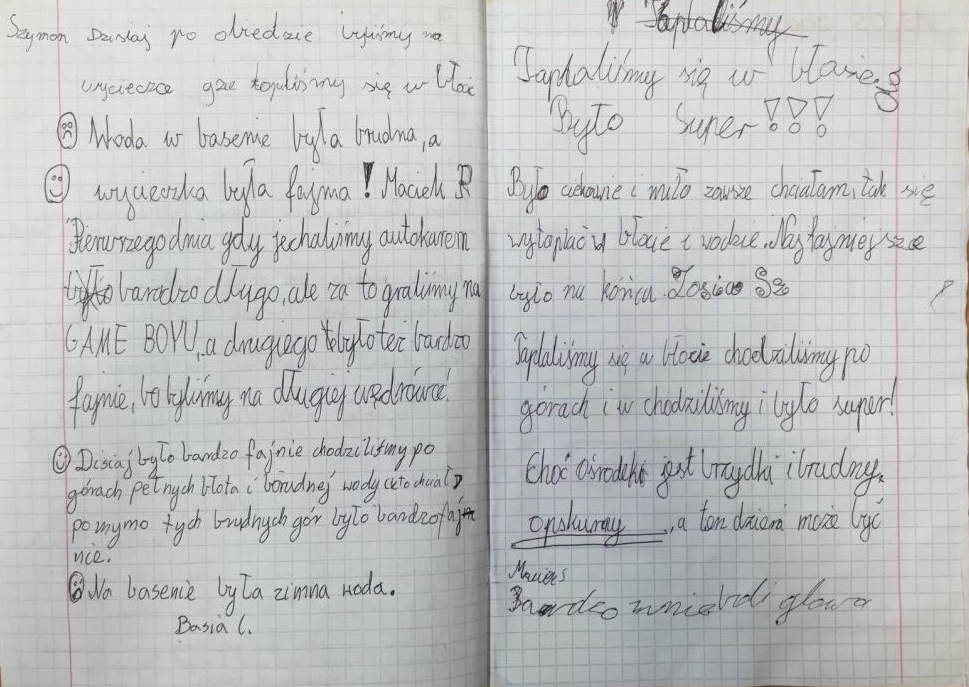 Szymon Dzisiaj po obiedzie byliśmy na
wycieczce gze topiliśmy się w błocie
Woda w basenie była brudna, a
wycieczka była fajma! Maciek R
Pierwszego dnia gdy jechaliśmy autokarem
było barodzo długo, ale za to graliśmy na
GAME BOYU, a drugiego było też bardzo
fajnie, bo byliśmy na długiej wędrówce!
Disiaj było bardzo fajnie chodziliśmy po
górach pełnych błota i borudnej wody
pomymo tych brudnych gór było bardzo faj
nie.
Na basenie była zimna woda.
Basia C.
Taplaliśmy
Taplaliśmy się w błocie
Ola
Było super!!!
Było ciekawie i miło zawsze chciałam tak się
wytaplać w błocie i wodzie. Najfajniejsze
było na końcu Zosia Sz
Taplaliśmy się w błocie chodzaliśmy po
górach i w chodziliśmy i było super!
Choć Ośrodek jest brzydki i brudny,
opskurny, a ten dzień może być
Maciek S
Bardzo mnie boli głowa